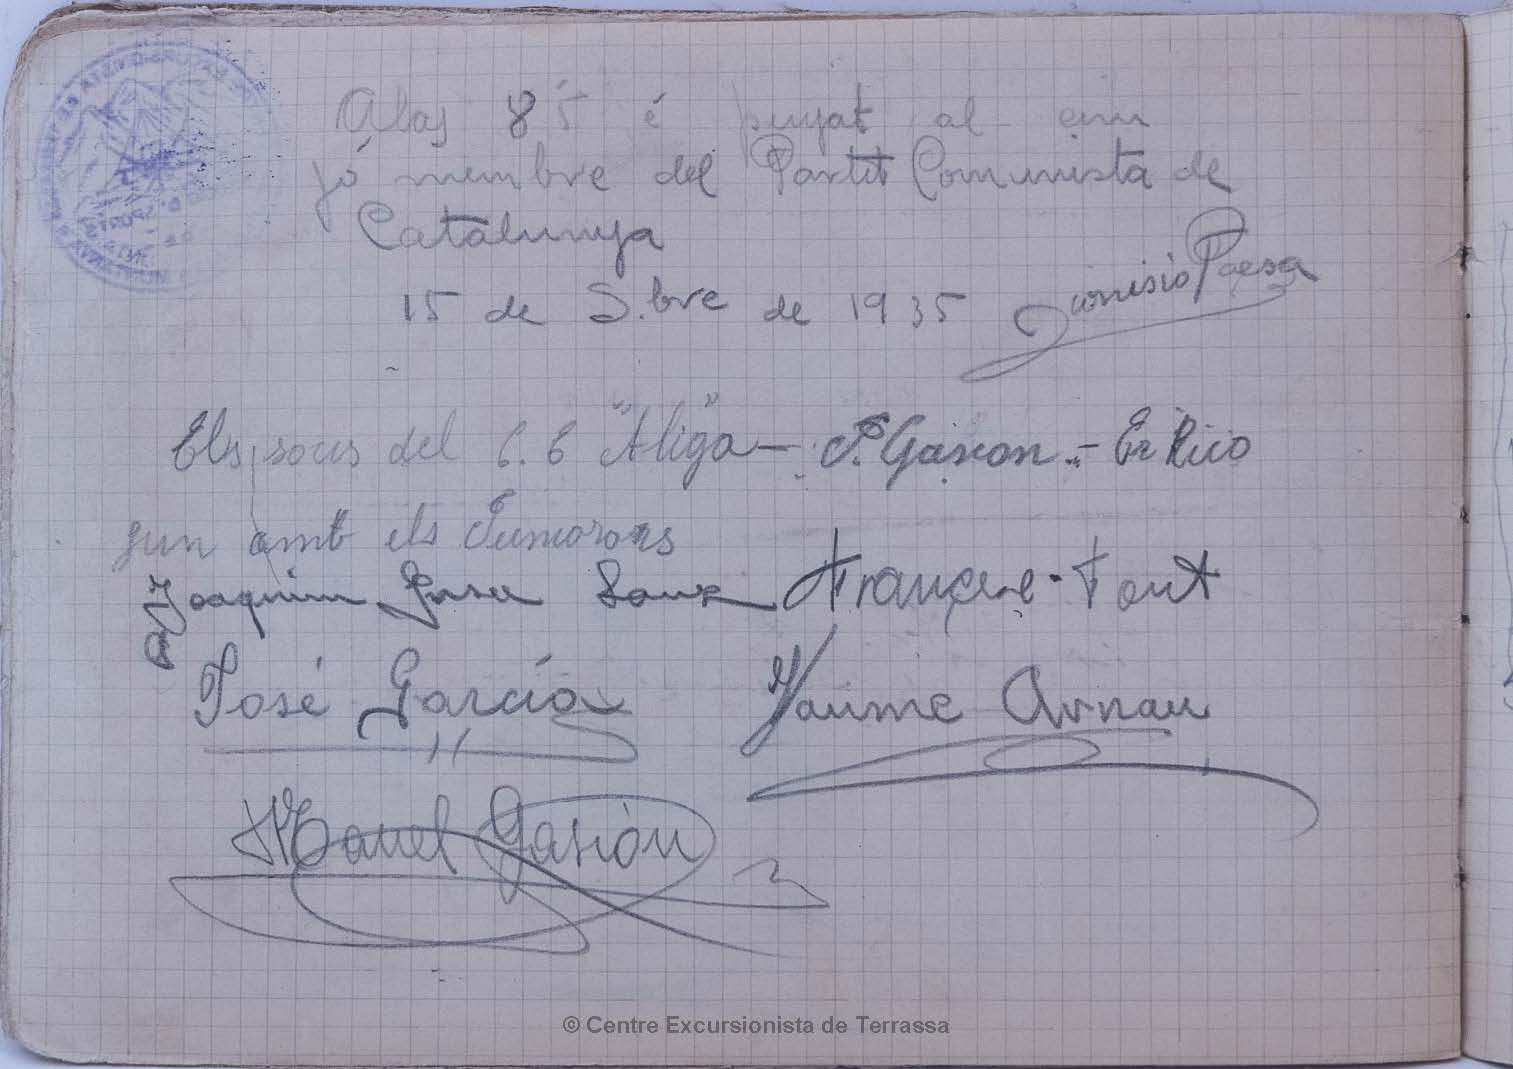 Alas 8'5 é pujat al cim
jó membre del Partit Comunista de
Catalunya
15 de S.bre de 1935 Dionisio Paesa
Els socis del C. E "Aliga" - P. Gascon - E. Rico
jun amb els
Joaquim Francesc Font
José García Jaume Arnau
Manel Gascón
© Centre Excursionista de Terrassa